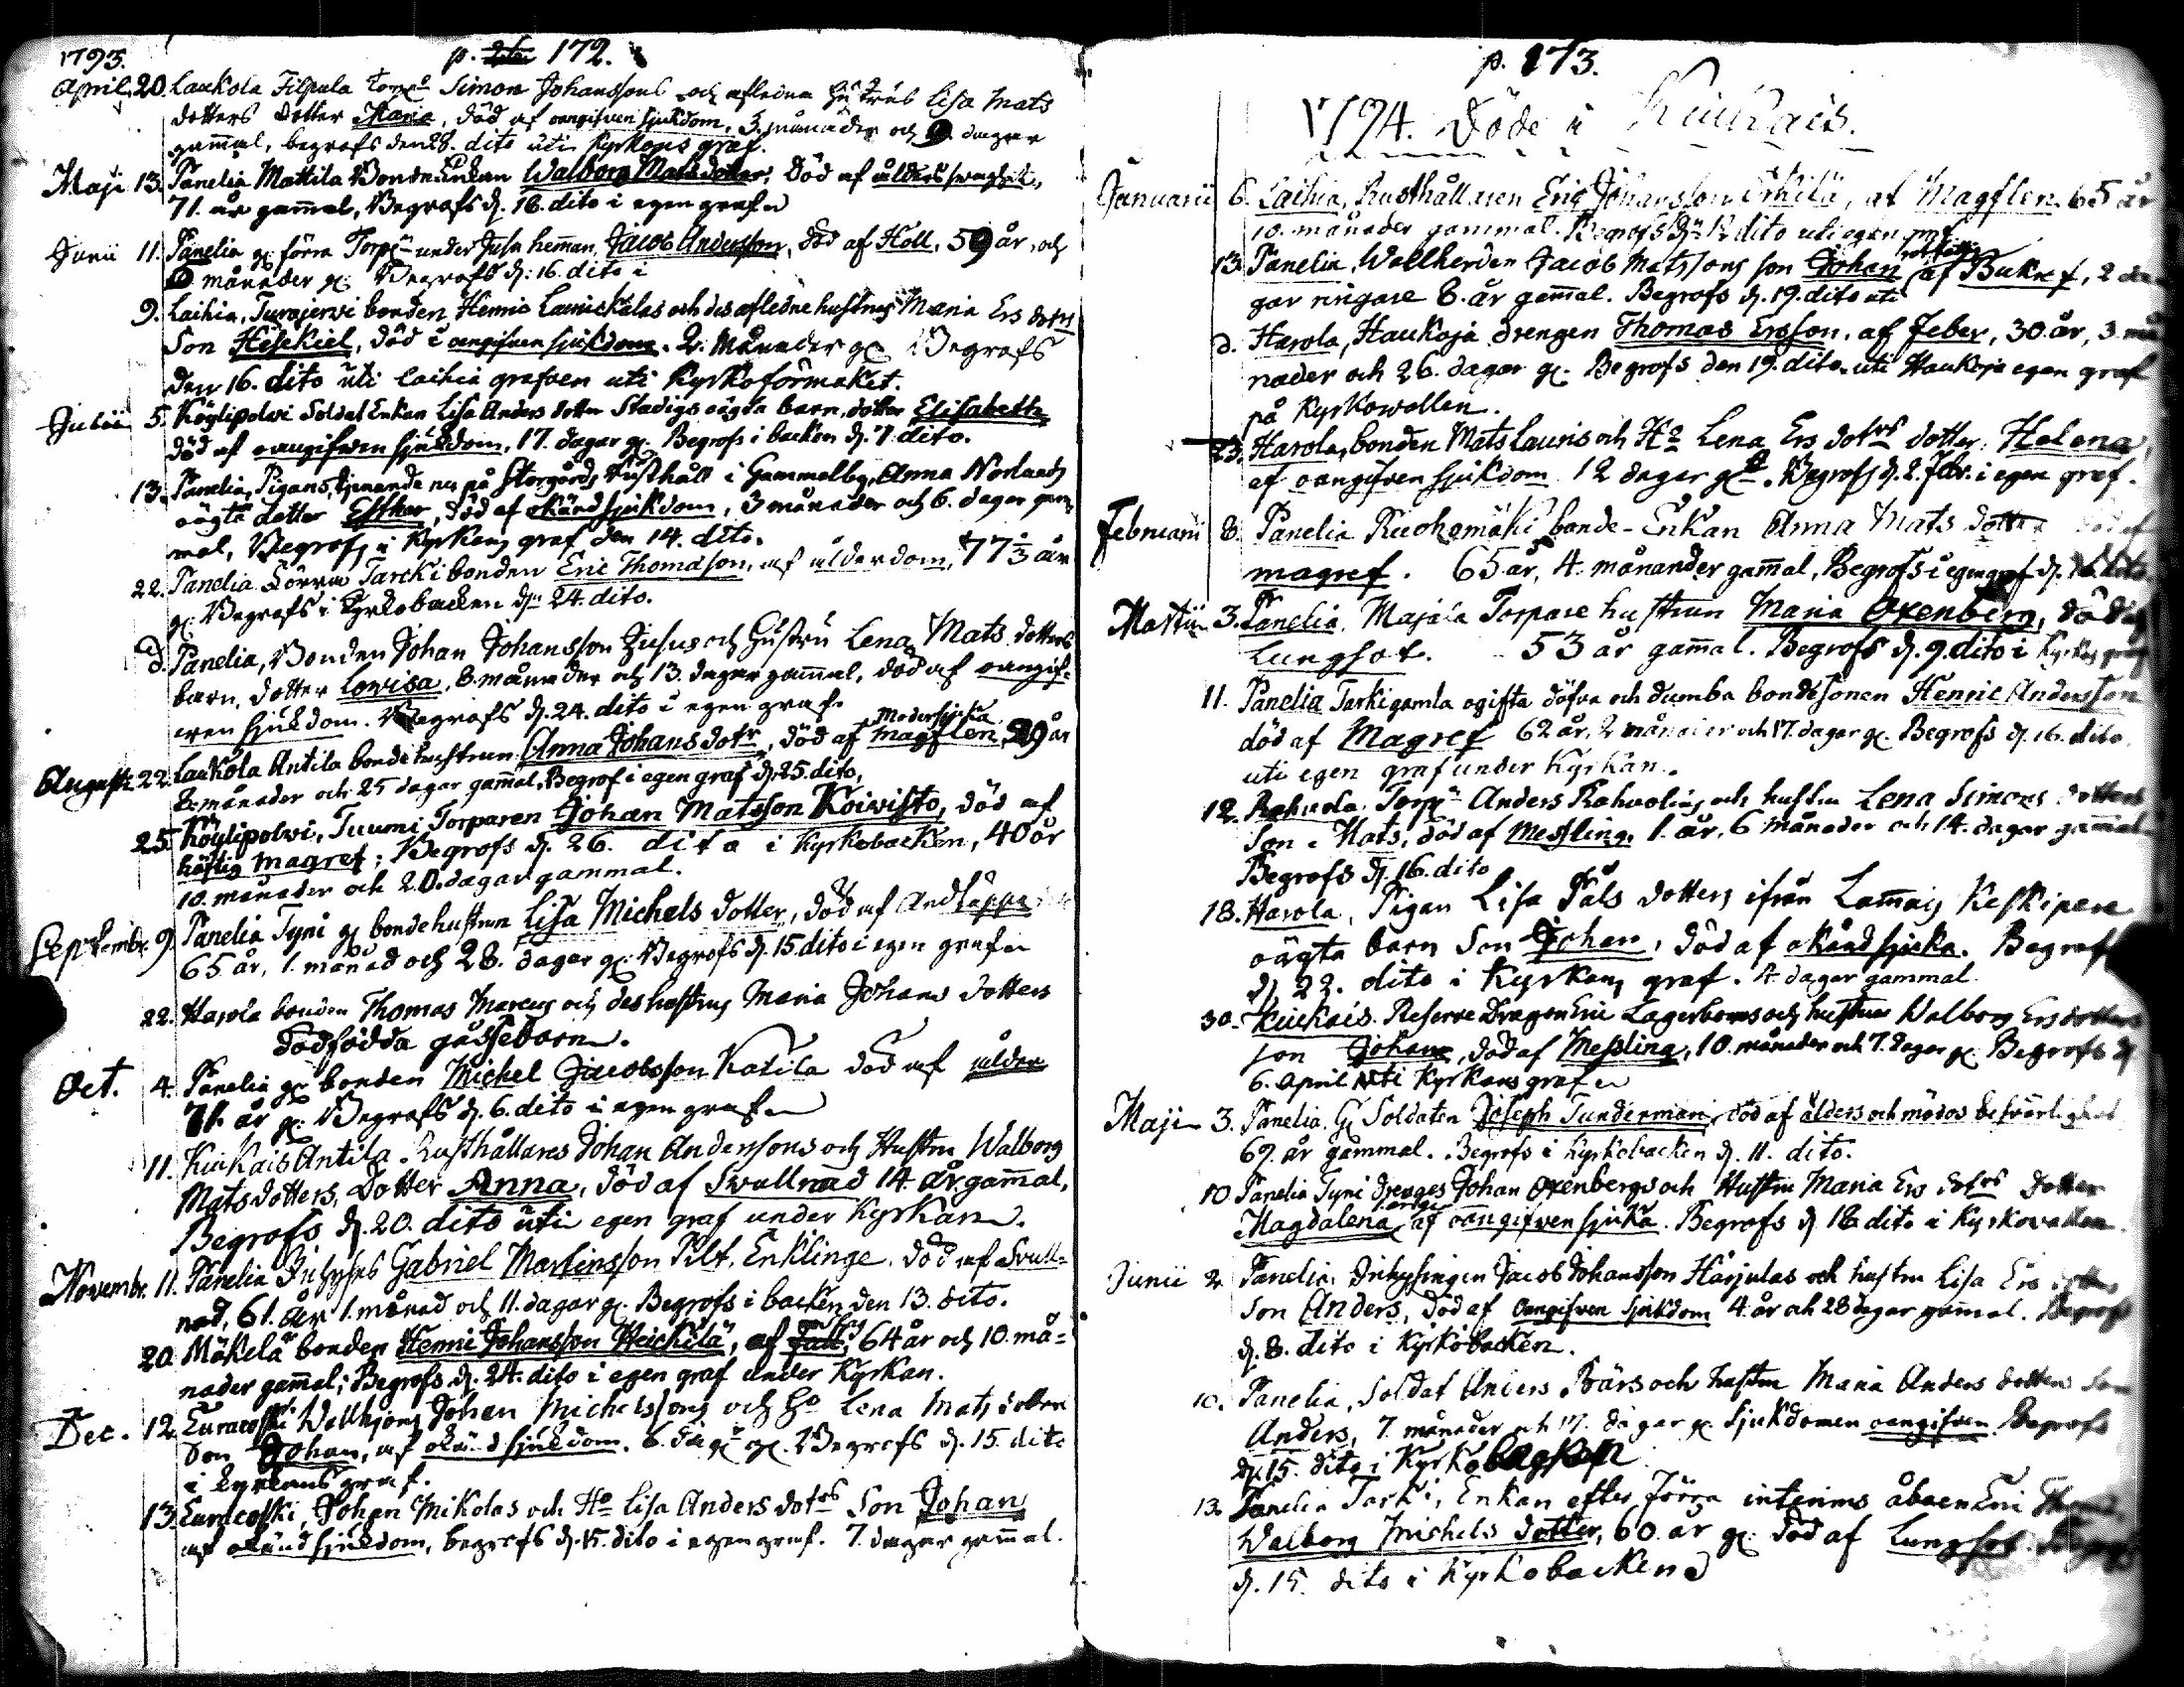 1793.
p. 172.
April. 20. Laukola Filpula Torp. Simon Johanssons och aflidna Hustrus Lisa Mats
dotters dotter Maria, död af oangifven sjukdom, 3 månader och 9 dagar
gammal, begrofs den 28. dito uti Kyrkans graf.
Maji 13. Panelia Mattila Bonde Enkan Walborg Matsdotter, död af ålders svaghet,
71. år gammal, Begrofs d. 16. dito i egen graf
Junii 11. Panelia g. förra Torp. under Jusu heman, Jacob Andersson, död af Håll, 59 år, och
månader g. Begrofs d. 16. dito i
9. Laihia, Turajervi bonden Henric Laurickalas och des aflidne hustrus Maria Ers dotrs
Son Hesekiel, död i oangifven sjukdom. 2. Månader g. Begrofs
den 16. dito uti Laihia grafven uti Kyrkoförmaket.
Julii 5. Köylipolvi Soldat Enkan Lisa Anders dotter Stadigs oägta barn, dotter Elisabeth
död af oangifven sjukdom, 17. dagar g. Begrofs i backen d. 7 dito.
13. Panelia, Pigans, tjenande nu på Storgårds Rusthåll i Gammelby, Anna Norlunds
oägta dotter Esther, död af okänd sjukdom, 3 månader och 6. dagar gam
mal, Begrofs i Kyrkans graf den 14. dito.
22. Panelia Förra Tarcki bonden Eric Thomasson, af ålderdom, 77 1/3 år
g. Begrofs i Kyrkobacken d. 24. dito.
d. Panelia, Bonden Johan Johansson Jusus och Hustru Lena Mats dotters
barn, dotter Lovisa, 8. månader och 13. dagar gammal, död af oangif-
ven sjukdom. Begrofs d. 24. dito i egen graf.
Augusti 22. Laukola Antila bonde hustrun Anna Johans dotr, död af Modersjuka Magflen 29 år
8. månader och 25 dagar gammal, Begrof i egen graf d. 25. dito,
25. Köylipolvi, Tuumi Torparen Johan Matsson Koivisto, död af
häftig magref; Begrofs d. 26. dito i Kyrkobacken, 40 år
10. månader och 20. dagar gammal.
Septembr. 9. Panelia Tyni g. bondehustrun Lisa Michels dotter, död af Andtäppa
65 år, 1. månad och 28. dagar g. Begrofs d. 15. dito i egen graf
22. Harola bonden Thomas Marcus och des hustrus Maria Johans dotters
dödfödda gåssebarn.
Oct. 4. Panelia g. bonden Michel Jacobsson Katila död af ålder
71. år g. Begrofs d. 6. dito i egen graf
11. Kiukais Antila Rusthållares Johan Anderssons och Hustru Walborg
Mats dotters, Dotter Anna, död af Svullnad 14. år gammal,
Begrofs d. 20. dito uti egen graf under Kyrkan.
Novembr. 11. Panelia Inhyses Gabriel Martinsson Pilt, Enklinge, död af Svull-
nad, 61. år 1. månad och 11. dagar g. Begrofs i backen den 13. dito.
20. Mäkelä bonden Henric Johansson Heickilä, af 64 år och 10. må-
nader gammal; Begrofs d. 24. dito i egen graf under Kyrkan.
Dec. 12. Euracoski Wallhjons Johan Michelssons och Ho Lena Mats dotters
Son Johan, af okänd sjukdom, 6. dag. g. Begrofs d. 15. dito
i Kyrkans graf.
13. Euracoski, Johan Mikolas och Ho Lisa Anders dotrs Son Johan
af okänd sjukdom, begrofs d. 15. dito i egen graf. 7. dagar gammal.
p. 173.
1794. Döde i Kiukais.
Januarii 6. Laihia, Rusthållaren Eric Johansson Erkilä, af Magflen. 65 år
10. månader gammal. Begrofs d. 12 dito uti egen graf
13. Panelia, Wallherden Jacob Matssons son Johan af Bukref, 2 da-
gar ringare 8. år gammal. Begrofs d. 19. dito uti
d. Harola, Haukoja drengen Thomas Ersson, af feber, 30 år, 3. må
nader och 26. dagar g. Begrofs den 19. dito uti Haukoja egen graf
på Kyrkovallen.
23. Harola, bonden Mats Lauris och Ho Lena Ers dotrs dotter Helena
af oangifven sjukdom 12 dagar g. Begrofs d. 2. febr. i egen graf.
Februarii 8. Panelia Ruohomäki bonde-Enkan Anna Mats dotter död af
magref. 65 år, 4. månander gammal, Begrofs i egen graf d. 16 dito
Martii 3. Panelia, Majala Torpare hustrun Maria Oxenberg, död af
Lungsot. 53 år gammal. Begrofs d. 9. dito i Kyrkans graf
11. Panelia Tarki gamla ogifta döfva och dumba bondesonen Henric Andersson
död af Magref 62 år, 2 månader och 17. dagar g. Begrofs d. 16. dito
uti egen graf under Kyrkan.
12. Rahvola Torp. Anders Rahvolins och hustru Lena Simons dotters
Son Mats, död af Messling, 1. år, 6 månader och 14. dagar gammal
Begrofs d. 16. dito
18. Harola, Pigan Lisa Påls dotters ifrån Lammais Keskipere
oägta barn Son Johan, död af okänd sjuka. Begrofs
d. 22. dito i Kyrkans graf. 4. dagar gammal
30. Kiukais. Reserve Dragon Eric Lagerboms och hustrus Walborg Ers dotters
son Johan, död af Messling, 10. månader och 7. dagar g. Begrofs d.
6. April uti Kyrkans graf
Maji 3. Panelia. G. Soldaten Joseph Tunderman, död af ålders och mödos besvärlighet
69. år gammal. Begrofs i Kyrkobacken d. 11. dito.
10 Panelia Tyni Drenges Johan Oxenbergs och Hustru Maria Ers dotrs Dotter
Magdalena, af oangifven sjuka. Begrofs d. 18. dito i Kyrkovallen
Junii 2. Panelia, Inhysingen Jacob Johansson Harjulas och hustru Lisa Ers dotters
Son Anders, död af oangifven sjukdom 4. år och 28 dagar gammal. Begrofs
d. 8. dito i Kyrkobacken.
10. Panelia, Soldat Anders Bärs och hustru Maria Anders dotters Son
Anders, 7. månader och 17. dagar g. sjukdomen oangifven Begrofs
d. 15. dito i Kyrkobacken
13. Panelia Tarki, Enkan efter förra interims åboen Eric
Walborg Michels dotter, 60. år g. död af Lungsot.
d. 15. dito i Kyrkobacken